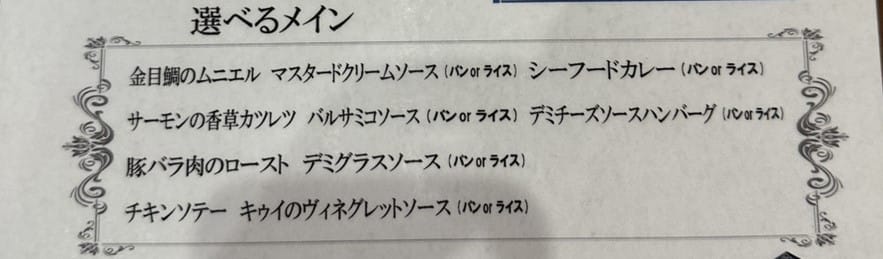 選べるメイン
金目鯛のムニエル マスタードクリームソース (パン or ライス) シーフードカレー (パン or ライス)
サーモンの香草カツレツ バルサミコソース (パン or ライス) デミチーズソースハンバーグ (パン or ライス)
豚バラ肉のロースト デミグラスソース (パン or ライス)
チキンソテー キゥイのヴィネグレットソース (パン or ライス)